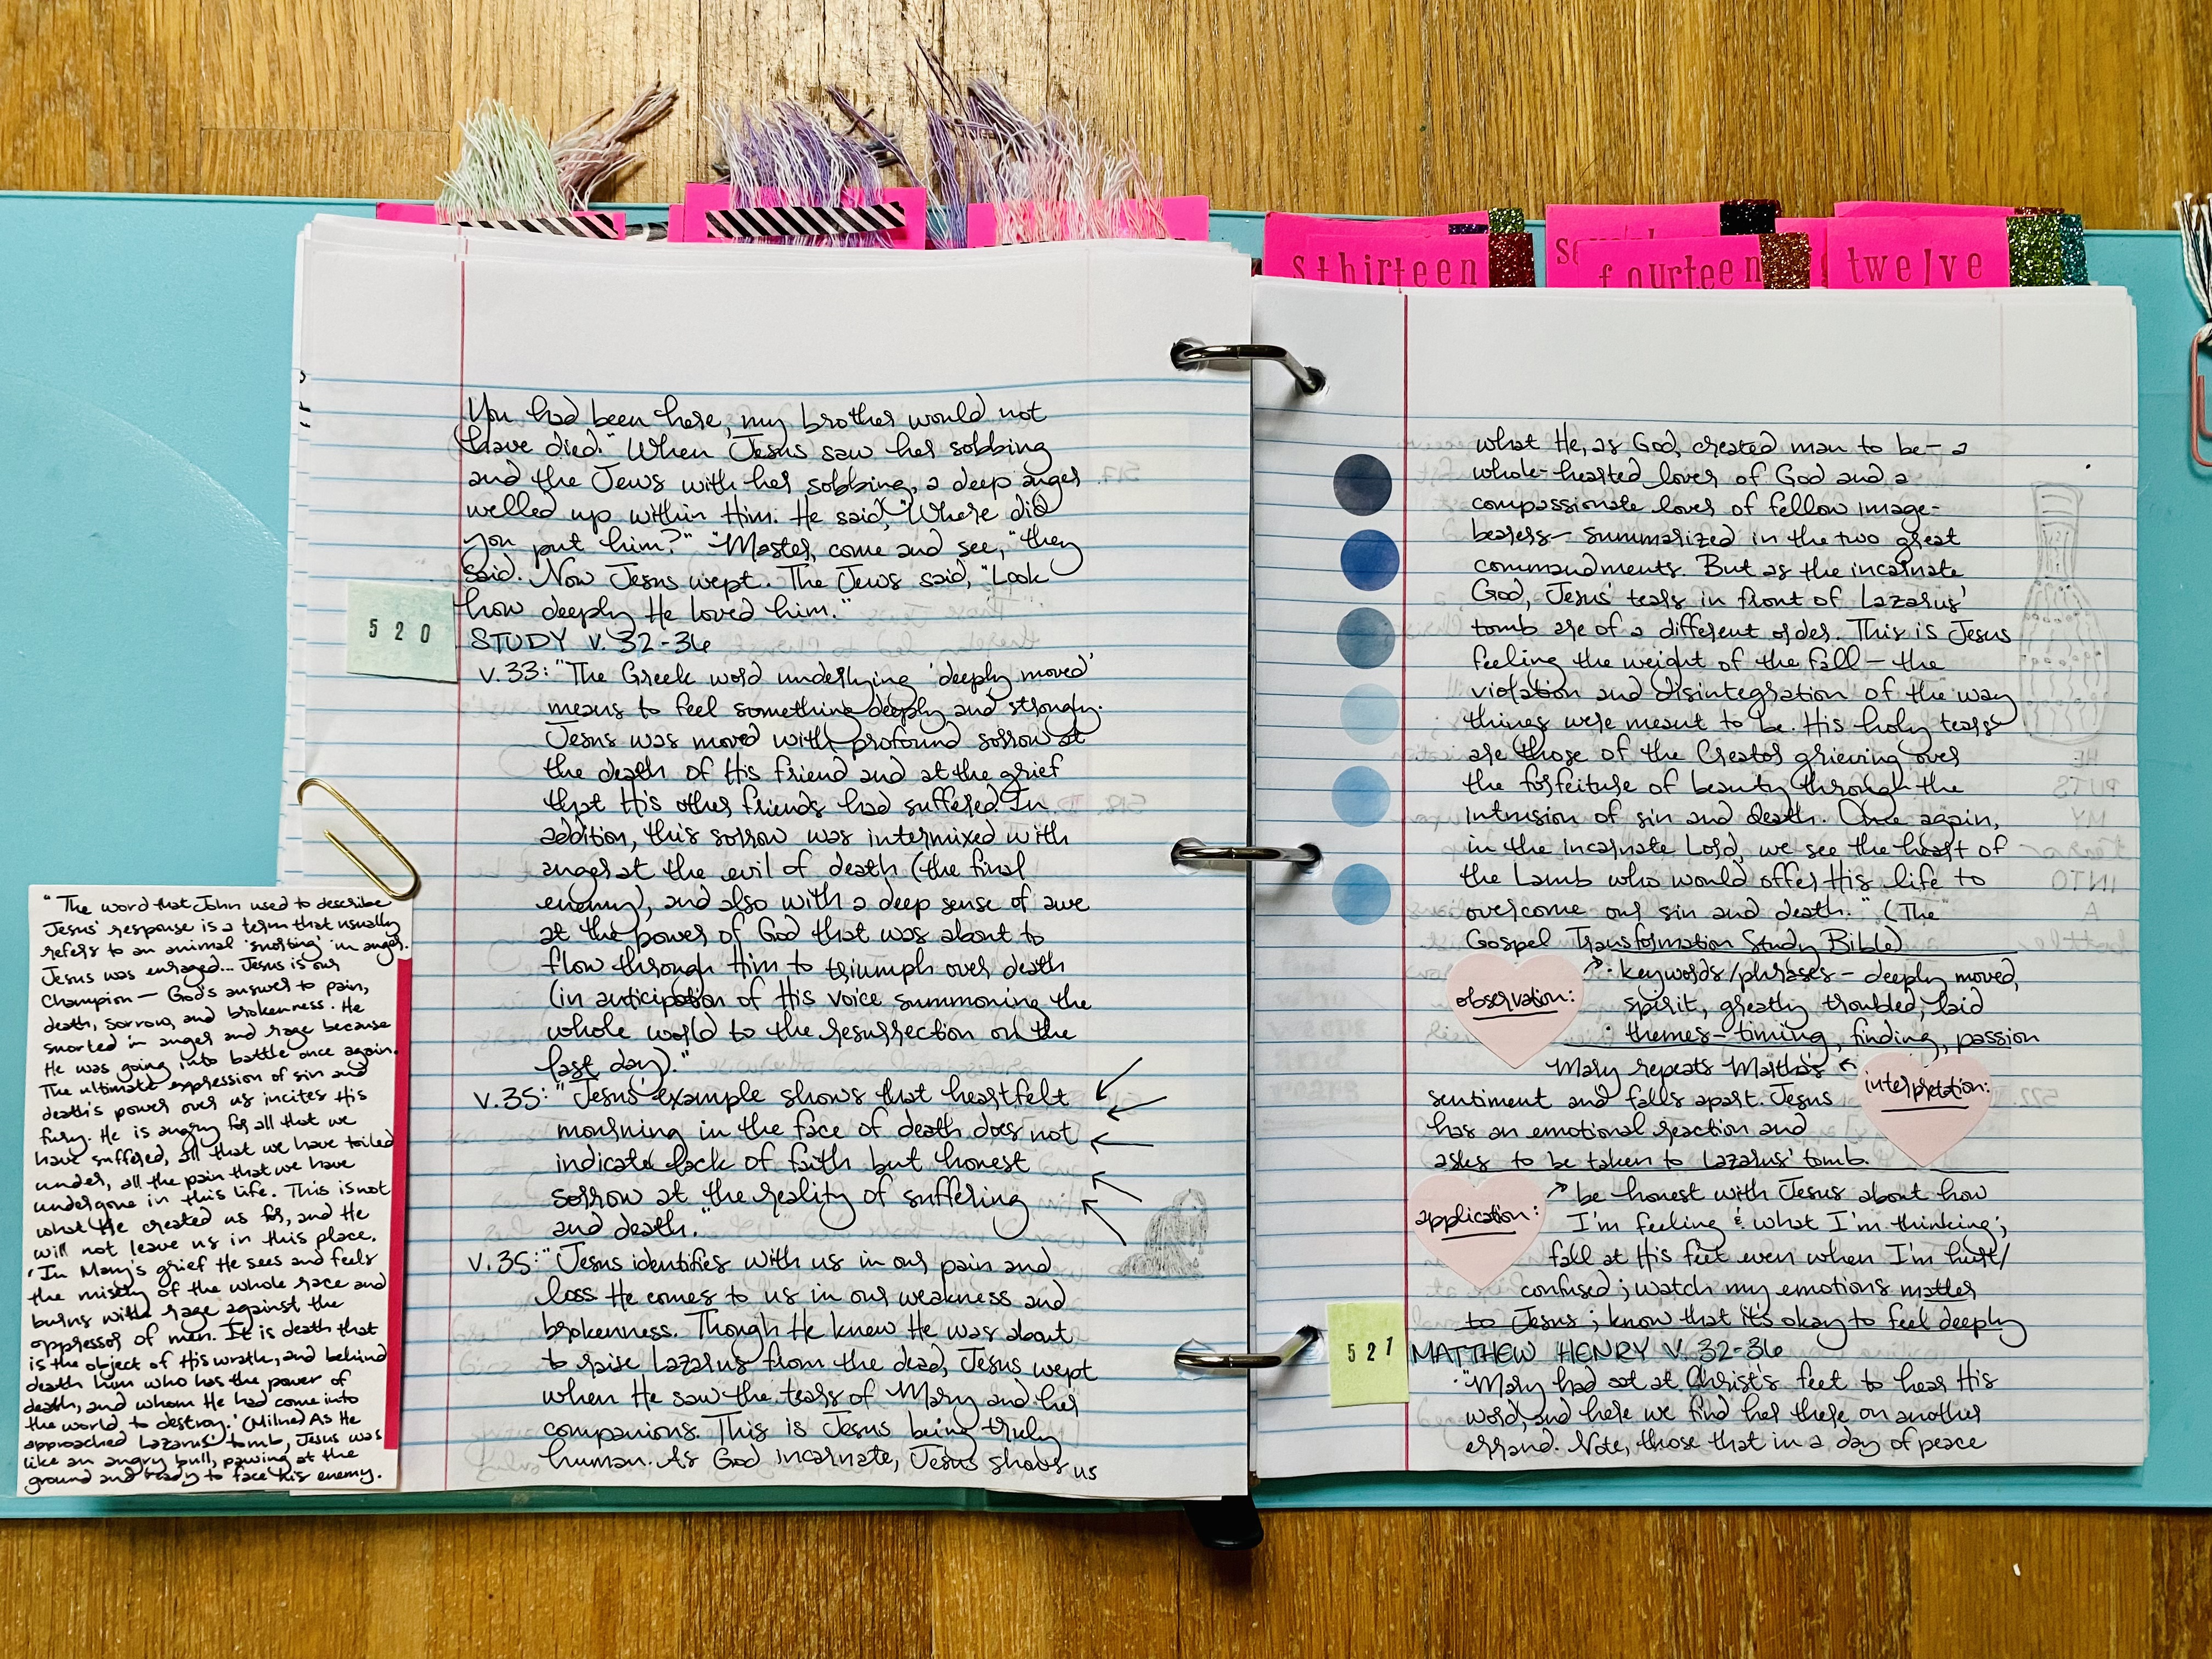 sthirteen
fourteen
twelve
You had been here, my brother would not
have died." When Jesus saw her sobbing
and the Jews with her sobbing, a deep anger
welled up within Him. He said, "Where did
you put him?" "Master, come and see," they
said. Now Jesus wept. The Jews said, "Look
how deeply He loved him."
520
STUDY V. 32-36
v.33: "The Greek word underlying 'deeply moved'
means to feel something deeply and strongly.
Jesus was moved with profound sorrow at
the death of His friend and at the grief
that His other friends had suffered. In
addition, this sorrow was intermixed with
anger at the evil of death (the final
enemy), and also with a deep sense of awe
at the power of God that was about to
flow through Him to triumph over death
(in anticipation of His voice summoning the
whole world to the resurrection on the
last day)."
v.35: "Jesus' example shows that heartfelt
mourning in the face of death does not
indicate lack of faith but honest
sorrow at the reality of suffering
and death."
v.35: "Jesus identifies with us in our pain and
loss. He comes to us in our weakness and
brokenness. Though He knew He was about
to raise Lazarus from the dead, Jesus wept
when He saw the tears of Mary and her
companions. This is Jesus being truly
human. As God incarnate, Jesus shows us
"The word that John used to describe
Jesus' response is a term that usually
refers to an animal 'snorting' in anger.
Jesus was enraged... Jesus is our
Champion— God's answer to pain,
death, sorrow, and brokenness. He
snorted in anger and rage because
He was going into battle once again.
The ultimate expression of sin and
death's power over us incites His
fury. He is angry for all that we
have suffered, all that we have toiled
under, all the pain that we have
undergone in this life. This is not
what He created us for, and He
will not leave us in this place.
'In Mary's grief He sees and feels
the misery of the whole race and
burns with rage against the
oppressor of men. It is death that
is the object of His wrath, and behind
death him who has the power of
death, and whom He had come into
the world to destroy.' (Milne) As He
approached Lazarus' tomb, Jesus was
like an angry bull, pawing at the
ground and ready to face his enemy.
what He, as God, created man to be— a
whole-hearted lover of God and a
compassionate lover of fellow image-
bearers— summarized in the two great
commandments. But as the incarnate
God, Jesus' tears in front of Lazarus'
tomb are of a different order. This is Jesus
feeling the weight of the fall— the
violation and disintegration of the way
things were meant to be. His holy tears
are those of the Creator grieving over
the forfeiture of beauty through the
intrusion of sin and death. Once again,
in the incarnate Lord, we see the heart of
the Lamb who would offer His life to
overcome our sin and death." (The
Gospel Transformation Study Bible)
observation:
· keywords/phrases— deeply moved,
spirit, greatly troubled, laid
· themes— timing, finding, passion
interpretation:
Mary repeats Martha's
sentiment and falls apart. Jesus
has an emotional reaction and
asks to be taken to Lazarus' tomb.
application:
be honest with Jesus about how
I'm feeling & what I'm thinking;
fall at His feet even when I'm hurt/
confused; watch my emotions matter
to Jesus; know that it's okay to feel deeply
521
MATTHEW HENRY V. 32-36
· "Mary had sat at Christ's feet to hear His
word, and here we find her there on another
errand. Note, those that in a day of peace